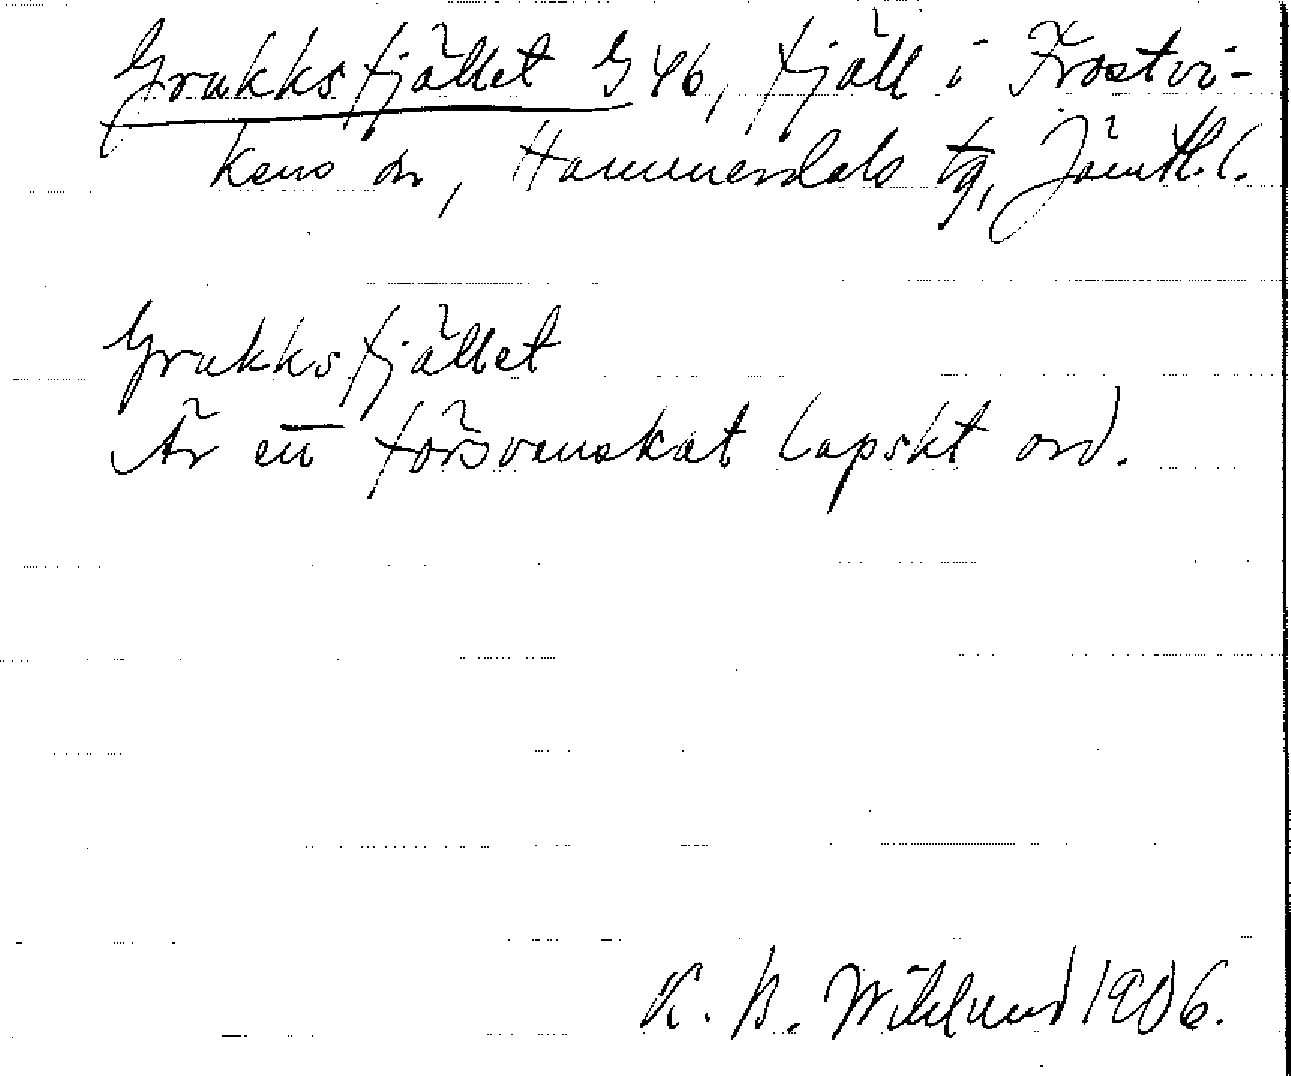 Grukksfjället G 46, fjäll i Frostvi-
kens sn, Hammerdals tg, Jämtl. l.
Grukksfjället
Är ett försvenskat lapskt ord.
K. B. Wiklund 1906.